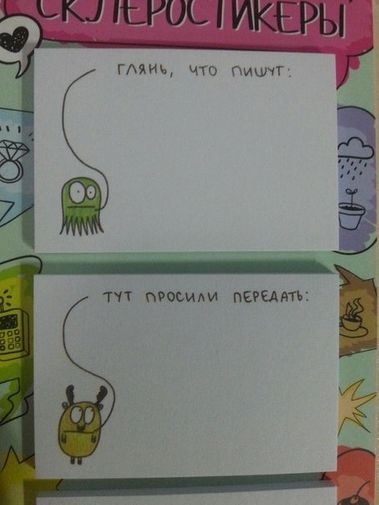 СКЛЕРОСТИКЕРЫ
ГЛЯНЬ, ЧТО ПИШУТ:
ТУТ ПРОСИЛИ ПЕРЕДАТЬ: